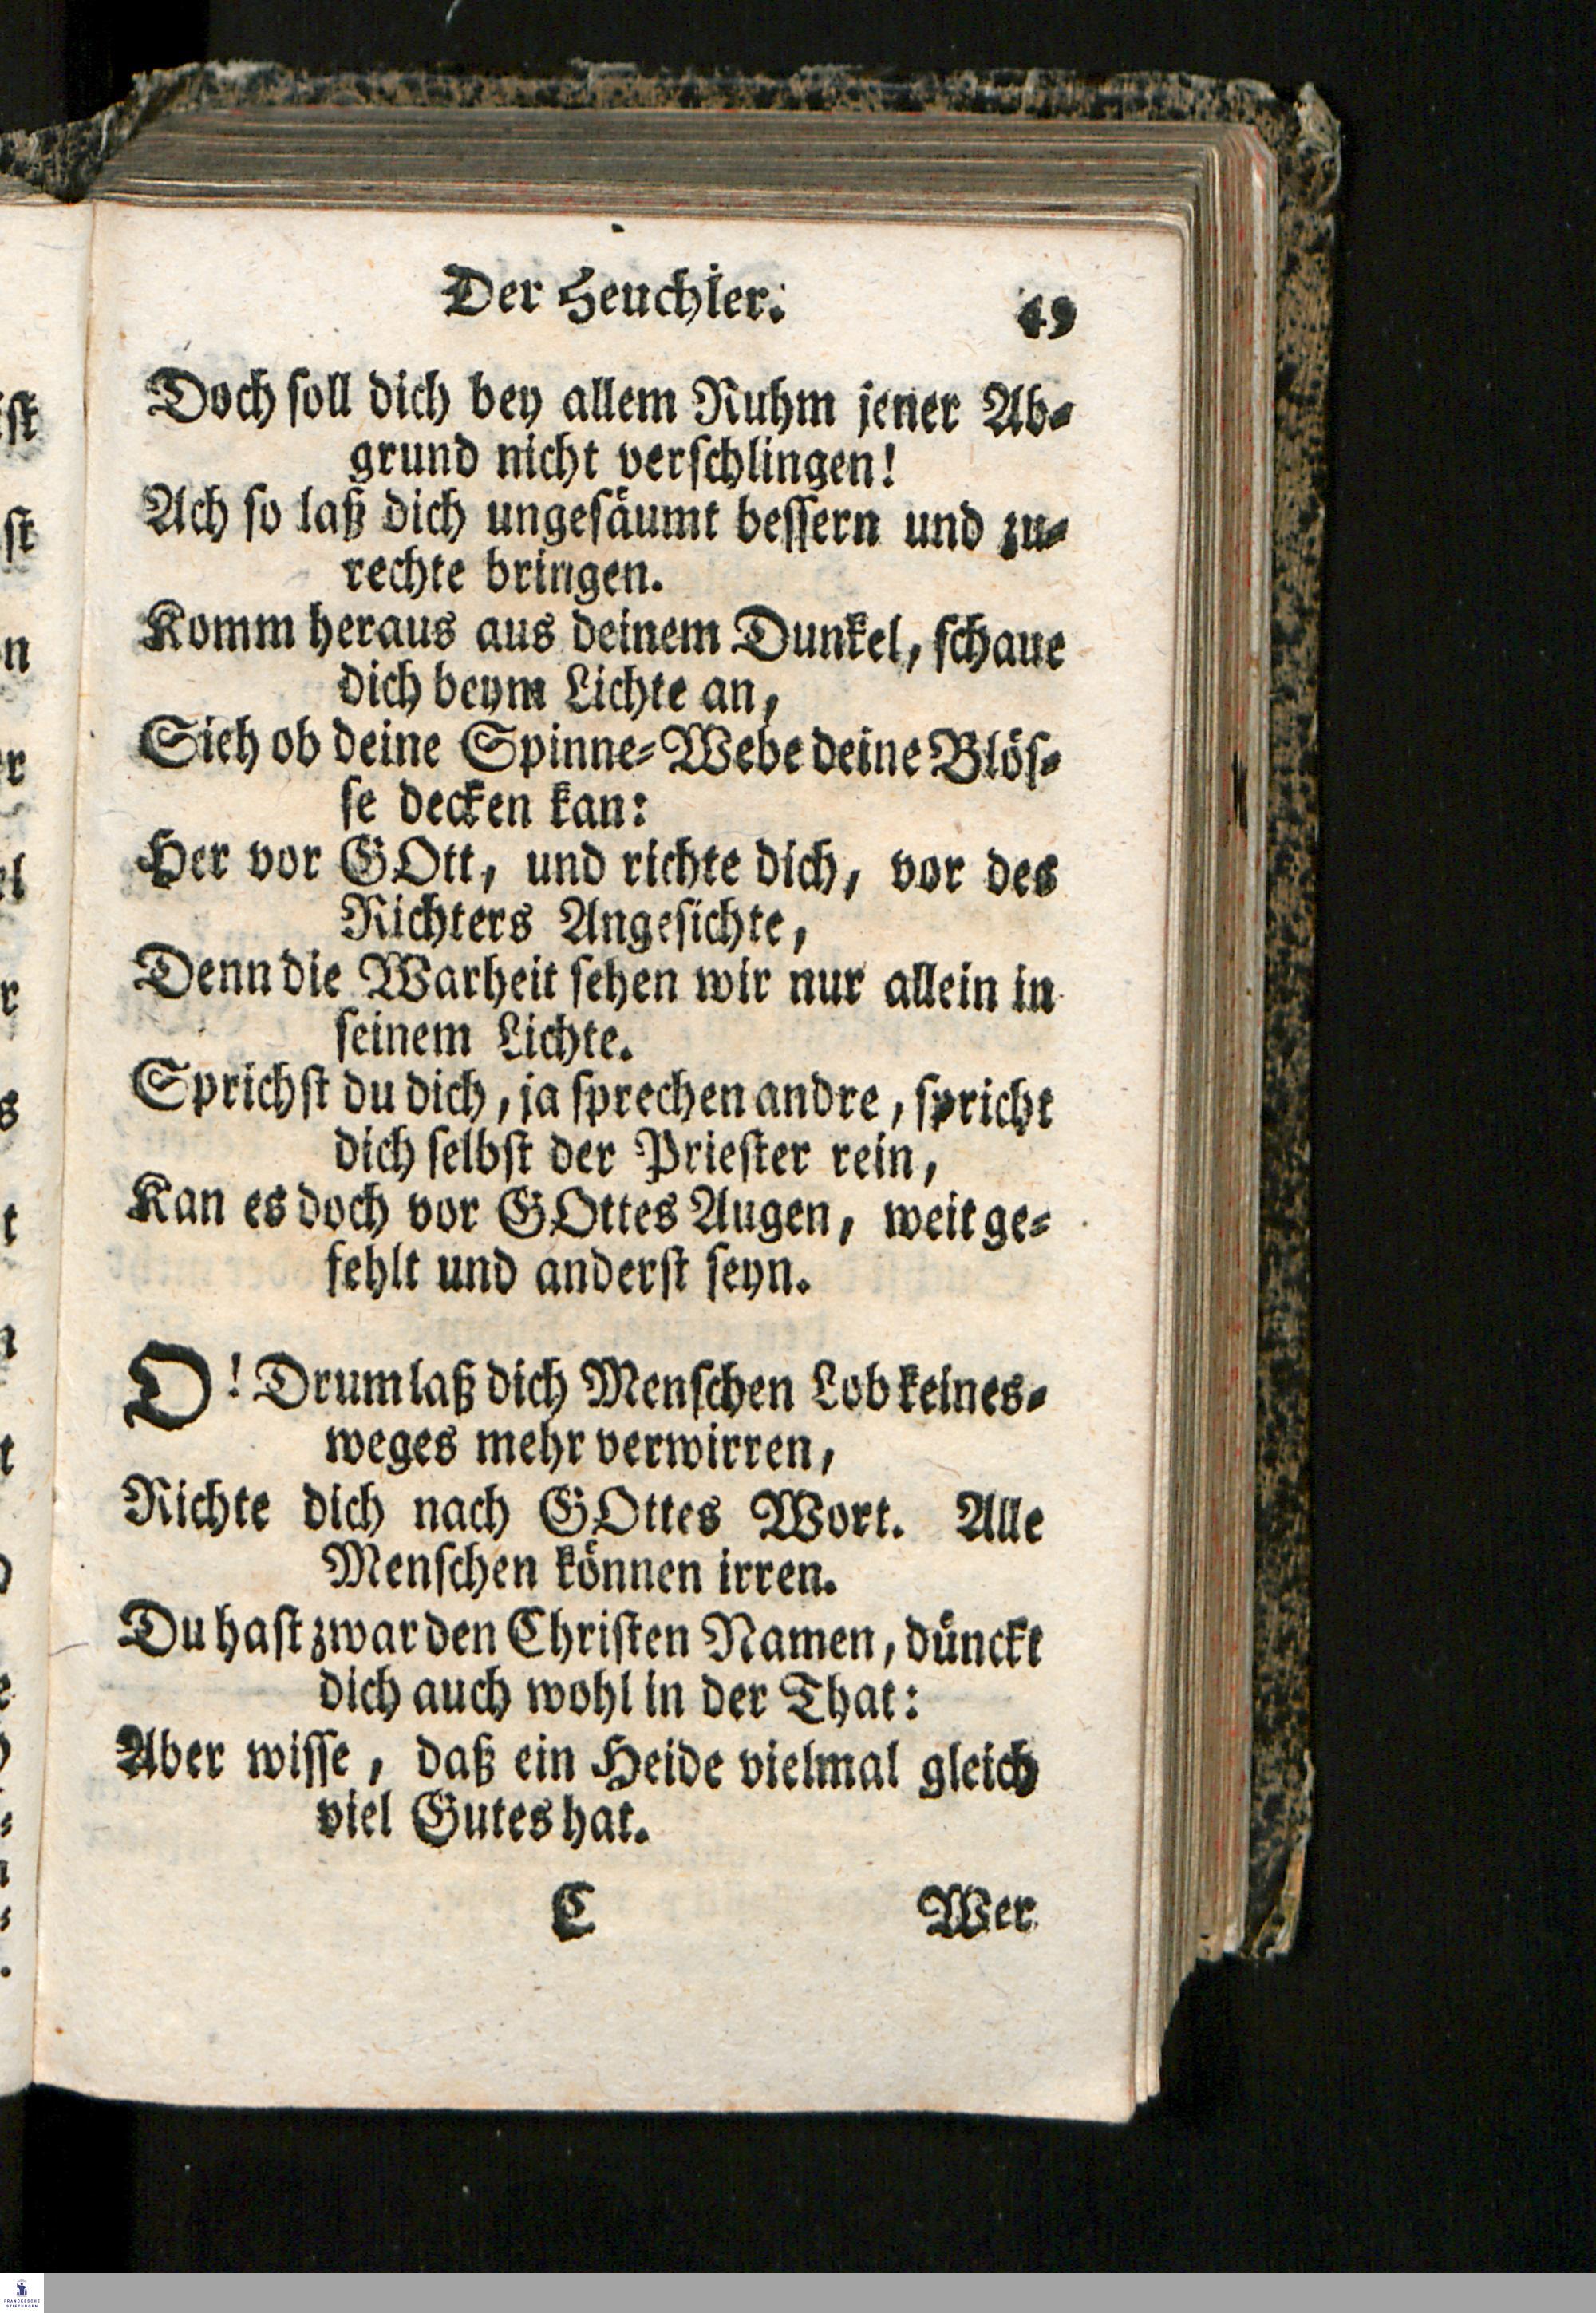 Der Heuchler. 49
Doch soll dich bey allem Ruhm jener Ab-
grund nicht verschlingen!
Ach so laß dich ungesäumt bessern und zu-
rechte bringen.
Komm heraus aus deinem Dunkel, schaue
dich beym Lichte an,
Sieh ob deine Spinne-Webe deine Blös-
se decken kan:
Her vor GOtt, und richte dich, vor des
Richters Angesichte,
Denn die Warheit sehen wir nur allein in
seinem Lichte.
Sprichst du dich, ja sprechen andre, spricht
dich selbst der Priester rein,
Kan es doch vor GOttes Augen, weit ge-
fehlt und anderst seyn.
O! Drum laß dich Menschen Lob keines-
weges mehr verwirren,
Richte dich nach GOttes Wort. Alle
Menschen können irren.
Du hast zwar den Christen Namen, dünckt
dich auch wohl in der That:
Aber wisse, daß ein Heide vielmal gleich
viel Gutes hat.
C Wer
FRANCKESCHE
STIFTUNGEN